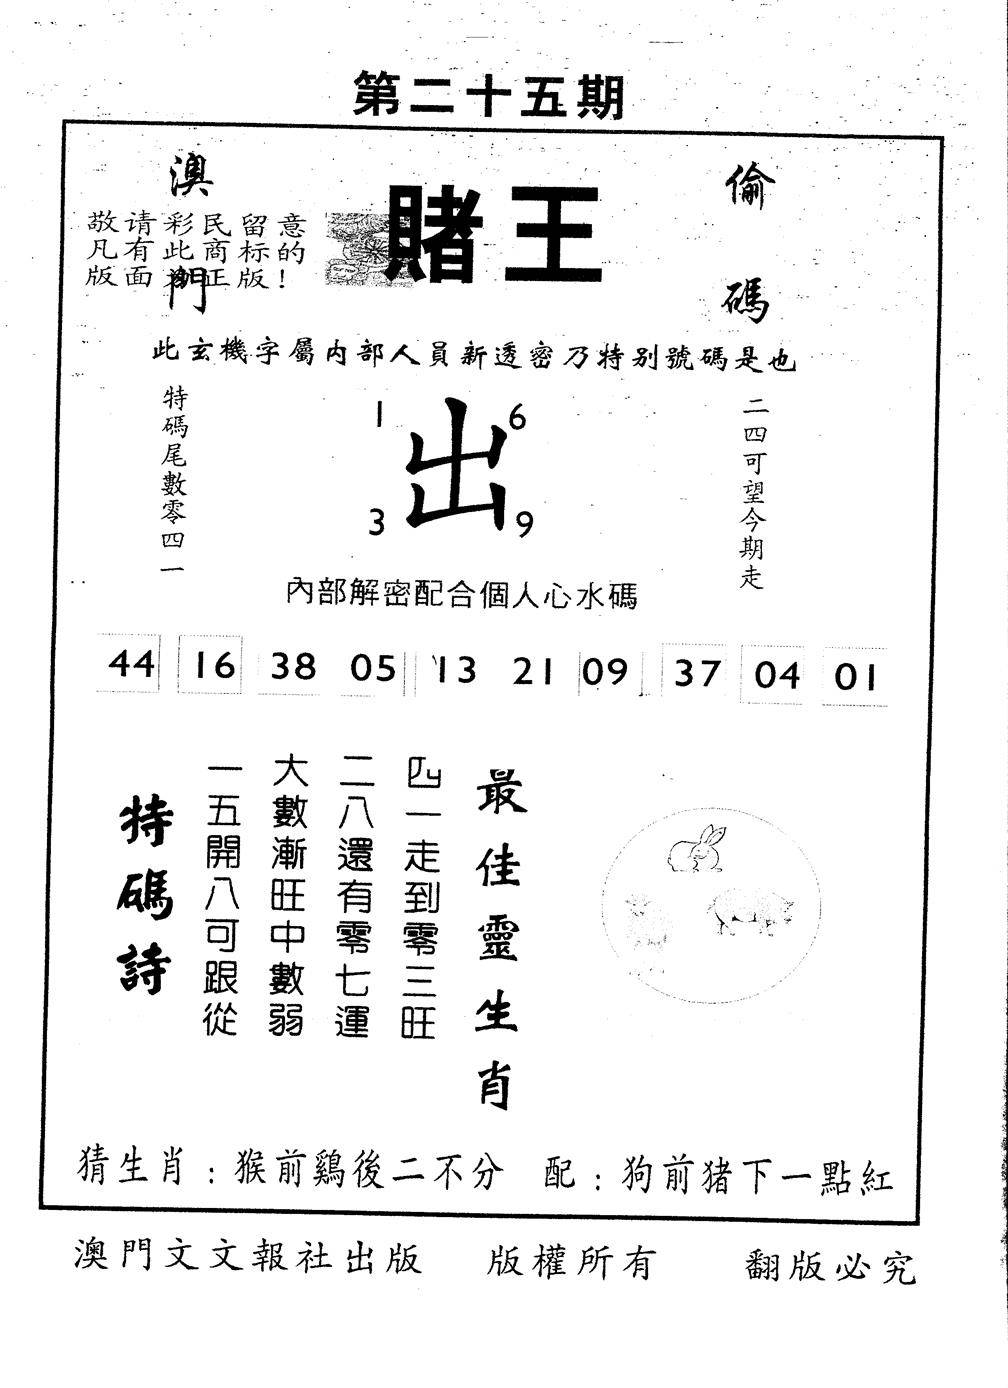 第二十五期
澳門
賭王
偷碼
敬请彩民留意
凡有此商标的
版面为正版!
此玄機字屬內部人員新透密乃特別號碼是也
特碼尾數零四一
1
6
出
3
9
二四可望今期走
內部解密配合個人心水碼
44 16 38 05 13 21 09 37 04 01
最佳靈生肖
四一走到零三旺
二八還有零七運
大數漸旺中數弱
一五開八可跟從
特碼詩
猜生肖:猴前鷄後二不分 配:狗前猪下一點紅
澳門文文報社出版 版權所有 翻版必究